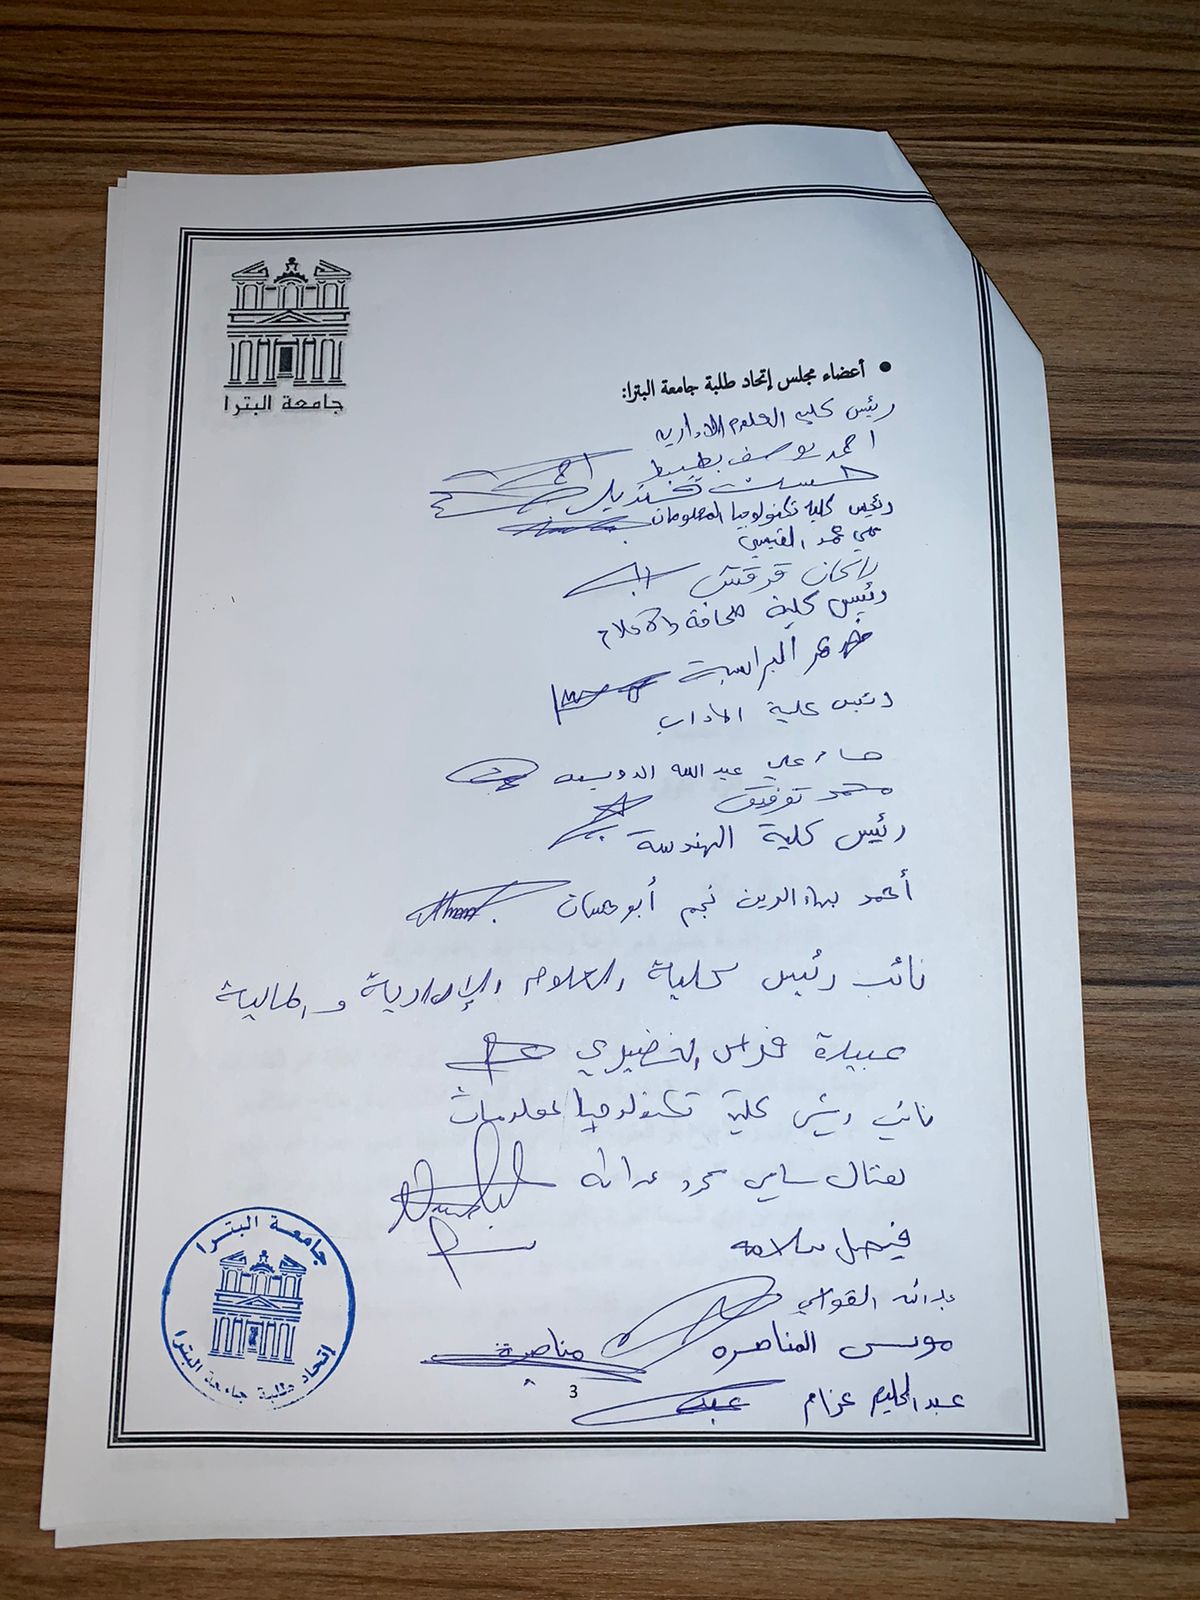 جامعة البترا
• أعضاء مجلس إتحاد طلبة جامعة البترا:
رئيس كلية العلوم الادارية
احمد يوسف
قنديل
رئيس كلية تكنولوجيا المعلومات
القيسي
قرقش
رئيس كلية صحافة والاعلام
البرايسة
رئيس كلية الاداب
علي عبد الله
محمد توفيق
رئيس كلية الهندسة
أحمد بهاء الدين نجم أبو حسان
نائب رئيس كلية العلوم الإدارية و المالية
عبيدة فراس الخضيري
نائب رئيس كلية تكنولوجيا معلومات
سامي
فيصل سلامه
القواسمي
موسى المناصره مناصرة
عبد الحليم عزام
3
جامعة البترا
إتحاد طلبة جامعة البترا